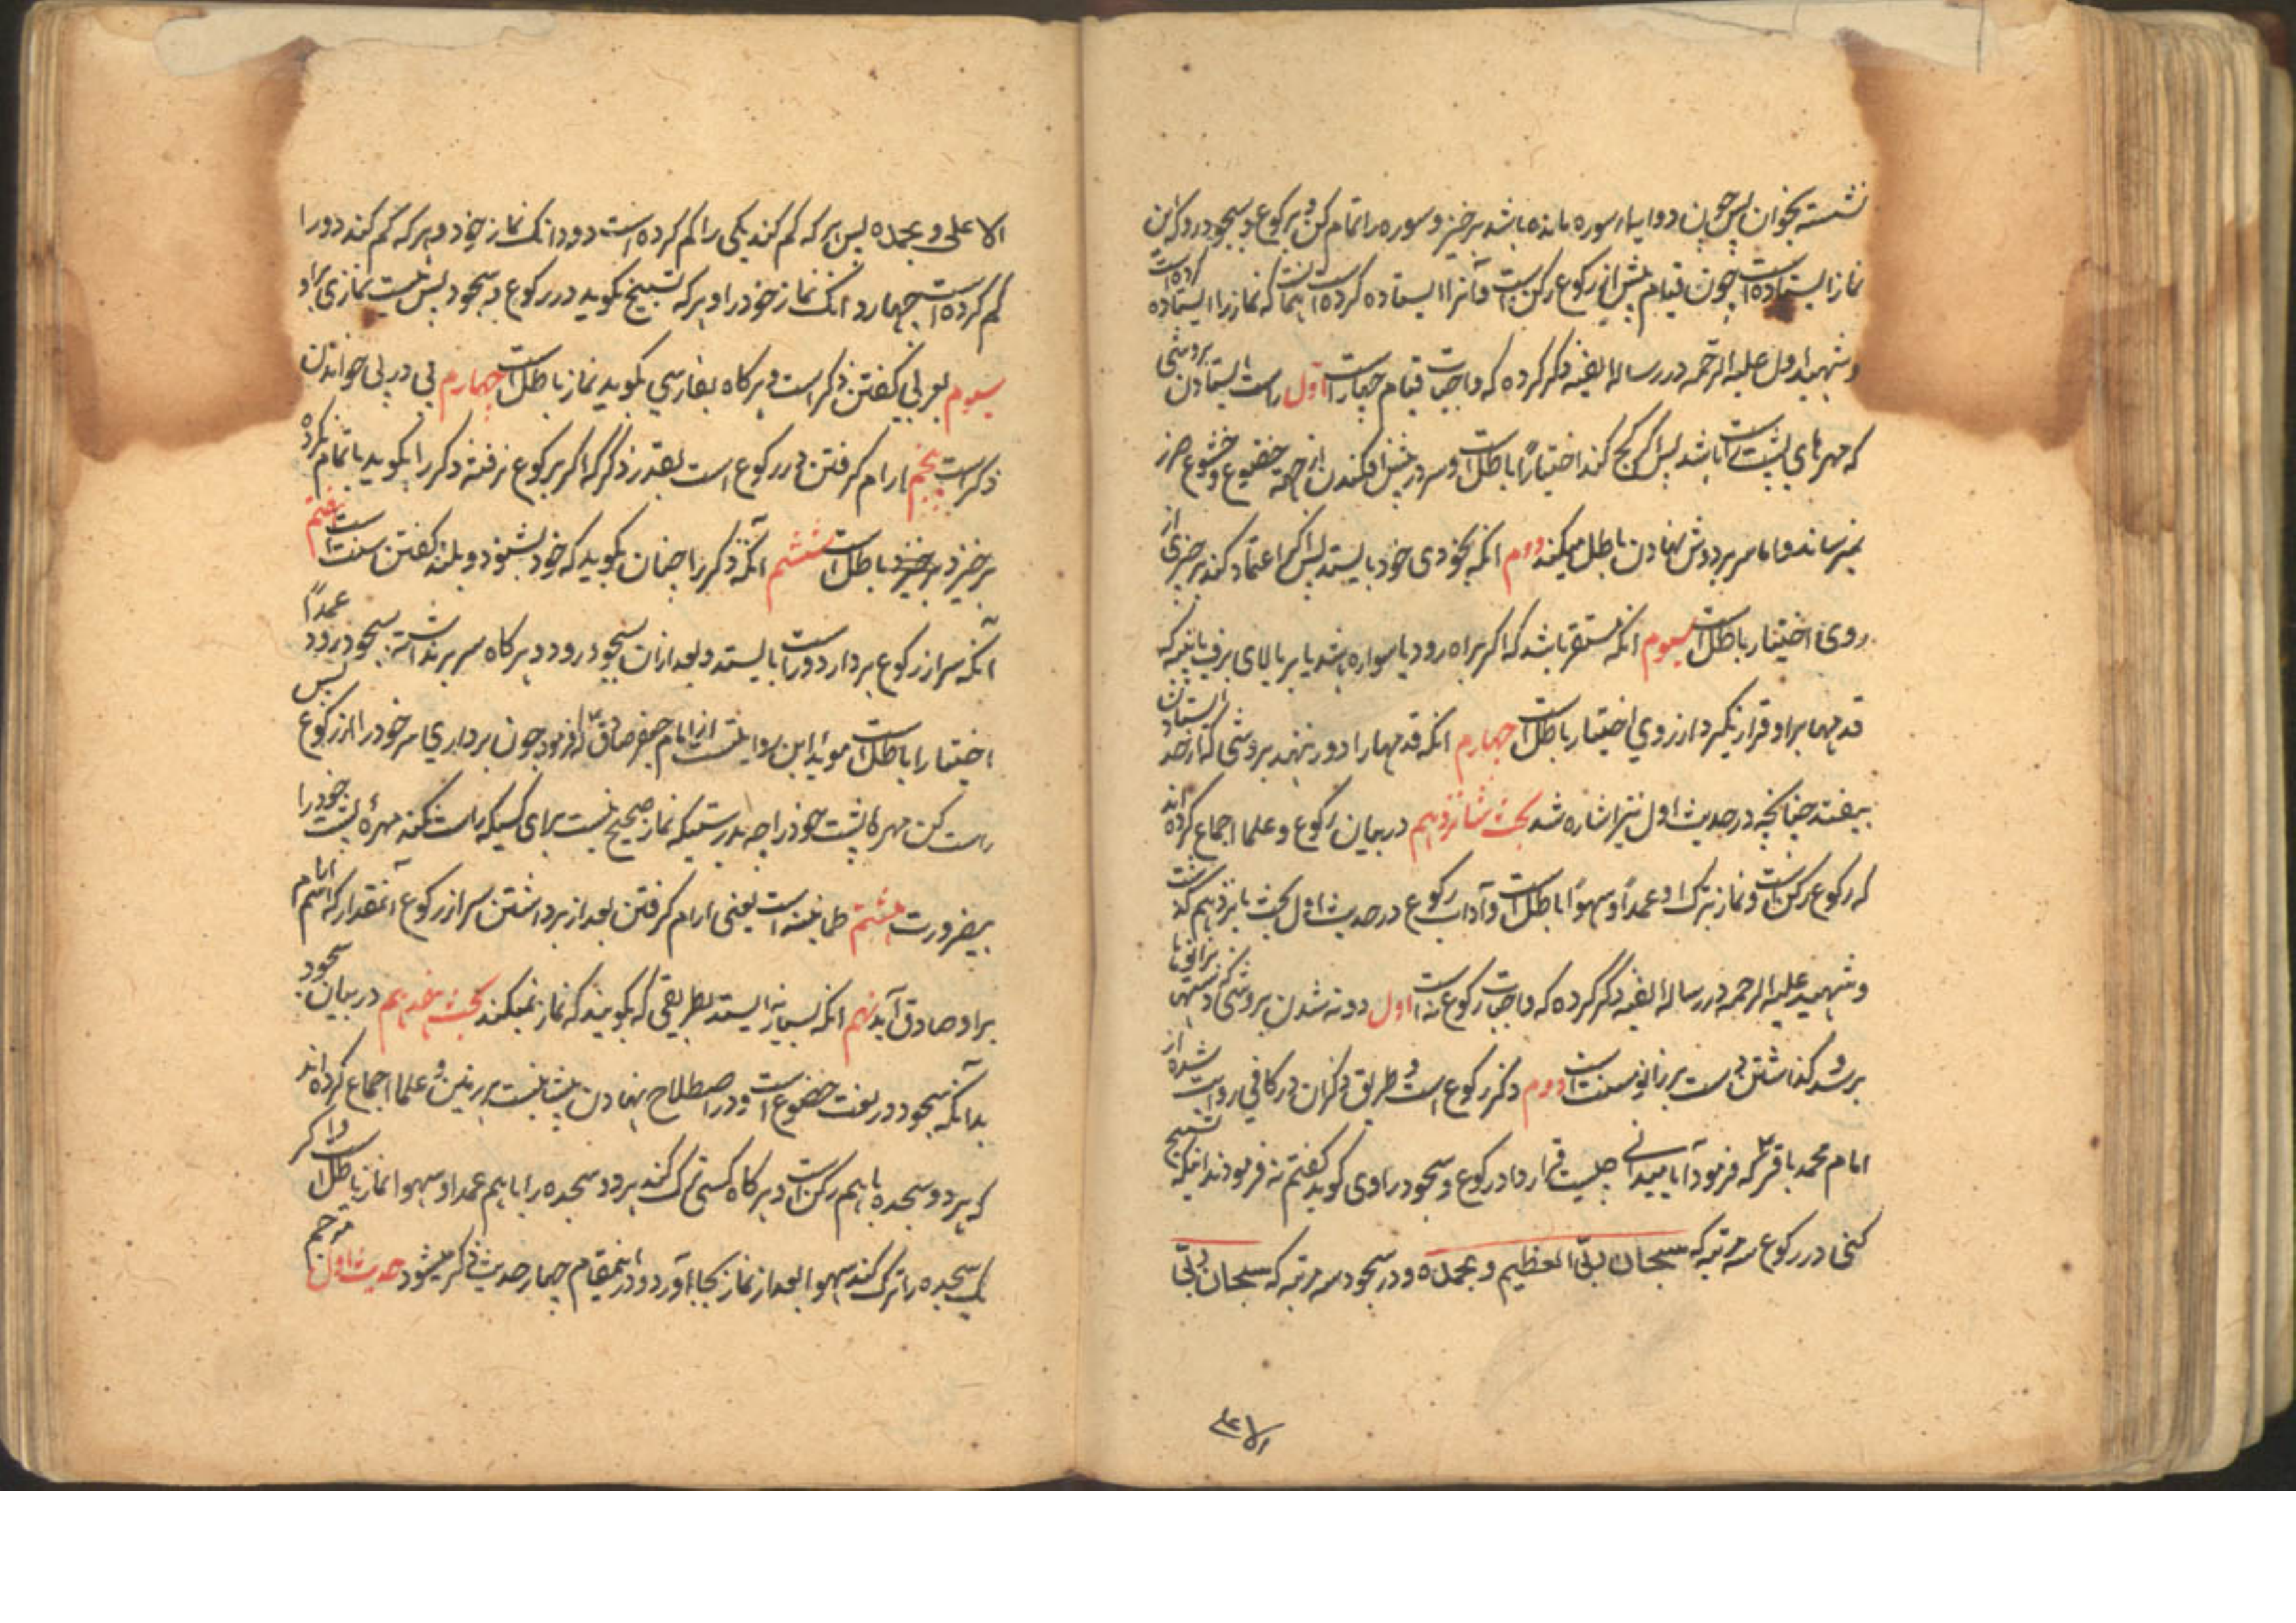 نشسته بخوان پس چون دو ایه از سوره مانده باشد برخیز و سوره را تمام کن و برکوع و سجود رو که این
نماز ایستاده است چون قیام پیش از رکوع رکن است و آنرا ایستاده کرده است همانست که نماز را ایستاده کرده است
و شهید اول علیه الرحمه در رساله الفیه ذکر کرده که واجبات قیام چهار است اول راست ایستادن بروشی
که مهرهای پشت راست باشد پس اگر کج کند اختیاراً باطل است و سر در پیش افکندن از جهة خضوع و خشوع ضرر
نمیرساند و اما سر بر دوش نهادن باطل میکند دوم انکه بخودی خود بایستد پس اگر اعتماد کند بر چیزی از
روی اختیار باطل است سیوم انکه مستقر باشد که اکر براه رود یا سواره باشد یا بر بالای برف یا پنبه که
قدمها براو قرار نگیرد از روی اختیار باطل است چهارم انکه قدمها را دور ننهد بروشی که از حد ایستادن
بیفتد چنانچه در حدیث اول نیز اشاره شد بحث شانزدهم در بیان رکوع و علما اجماع کرده اند
که رکوع رکن است و نماز بترک او عمداً و سهواً باطل است و آداب رکوع در حدیث اول بحث پانزدهم گذشت
و شهید علیه الرحمه در رساله الفیه ذکر کرده که واجبات رکوع نه است اول دوته شدن بروشی که دستها بزانوها
برسد و کذاشتن دست بر زانو سنت است دوم ذکر رکوع است و طریق ذکر ان در کافی روایت شده از
امام محمد باقر ع که فرمود آیا میدانی چیست قرار داد رکوع و سجود راوی کوید کفتم نه فرمودند اینکه تسبیح
کنی در رکوع سه مرتبه که سبحان ربی العظیم و بحمده و در سجود سه مرتبه که سبحان ربی
الاعلی
الاعلی و بحمده پس هر که کم کند یکی را کم کرده است دو دانک نماز خود و هر که کم کند دو را
کم کرده است چهار دانک نماز خود را و هر که تسبیح نکوید در رکوع و سجود پس نیست نمازی براو
سیوم بعربی کفتن ذکر است و هر کاه بفارسی بکوید نماز باطل است چهارم پی در پی خواندن
ذکر است پنجم ارام کرفتن در رکوع است بقدر ذکر که اکر برکوع نرفته ذکر را بکوید یا تمام نکرده
برخیزد باطل است ششم آنکه ذکر را چنان بکوید که خود بشنود و بلند کفتن سنت است هفتم
آنکه سر از رکوع بردارد و راست بایستد و بعد از ان بسجود رود و هر کاه سر برنداشته بسجود رود عمداً
اختیارا باطل است موید این روایتست از امام جعفر صادق ع که فرمود چون برداری سر خود را از رکوع پس
راست کن مهرهٔ پشت خود را چه بدرستیکه نماز صحیح نیست برای کسیکه راست نکند مهرهٔ پشت خود را
بیضرورت هشتم طمانینه است یعنی ارام کرفتن بعد از برداشتن سر از رکوع آنمقدار که اسم ارام
براو صادق آید نهم انکه بسیار نه ایستد بطریقی که بکویند که نماز نمیکند بحث هفدهم در بیان سجود
بدانکه سجود در لغت خضوع است و در اصطلاح نهادن پیشانیست بر زمین و علما اجماع کرده اند
که هر دو سجده با هم رکن است و هر کاه کسی ترک کند هر دو سجده را با هم عمدا و سهوا نماز باطل است و اکر
یک سجده را ترک کند سهوا بعد از نماز بجا آورد و در اینمقام چهار حدیث ذکر میشود حدیث اول مترجم